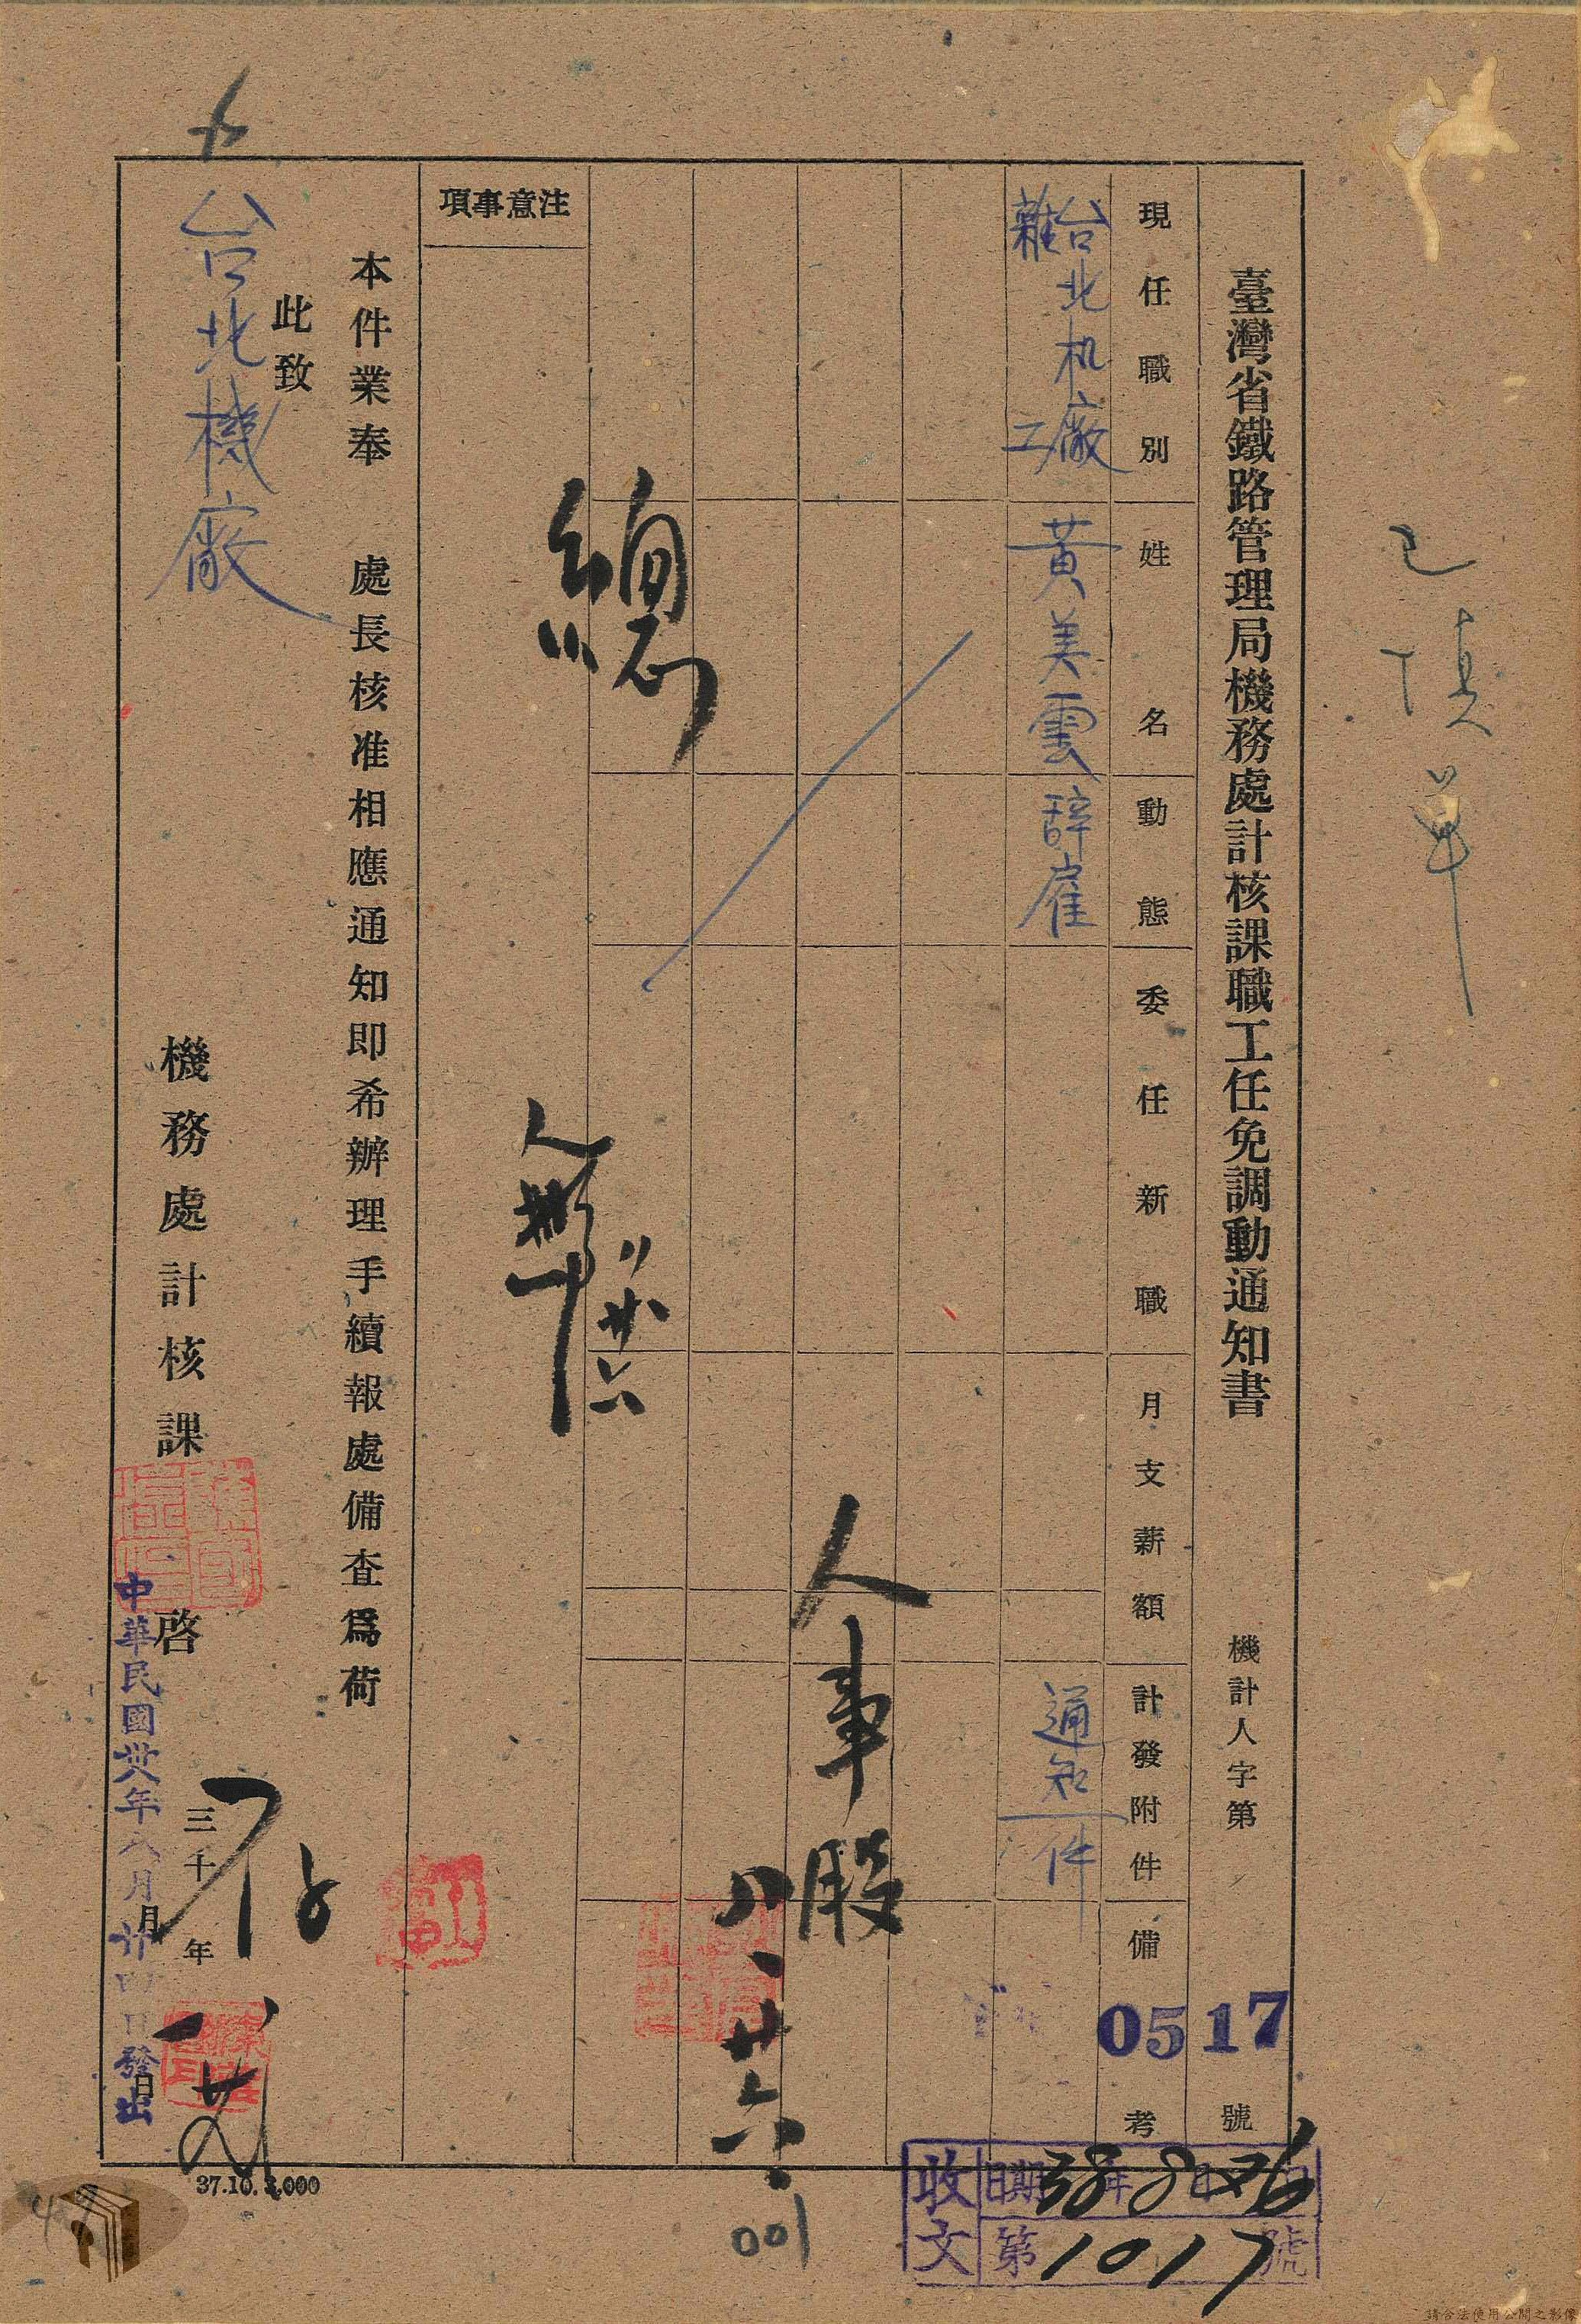 已填單
臺灣省鐵路管理局機務處計核課職工任免調動通知書
機計人字第 0517 號
現任職別
姓名
動態
委任新職
月支薪額
計發附件
備考
台北机廠
雜工
黃美雲
辭雇
通知一件
人事股
八、廿六、
001
總
八廿六
注意事項
本件業奉 處長核准相應通知即希辦理手續報處備查為荷
此致
台北機廠
機務處計核課 啓
三十 年
月 日
中華民國卅八年八月廿四日發出
37.10.3,000
收文
日期 38年 8月 26日
第 1017 號
請合法使用公開之影像